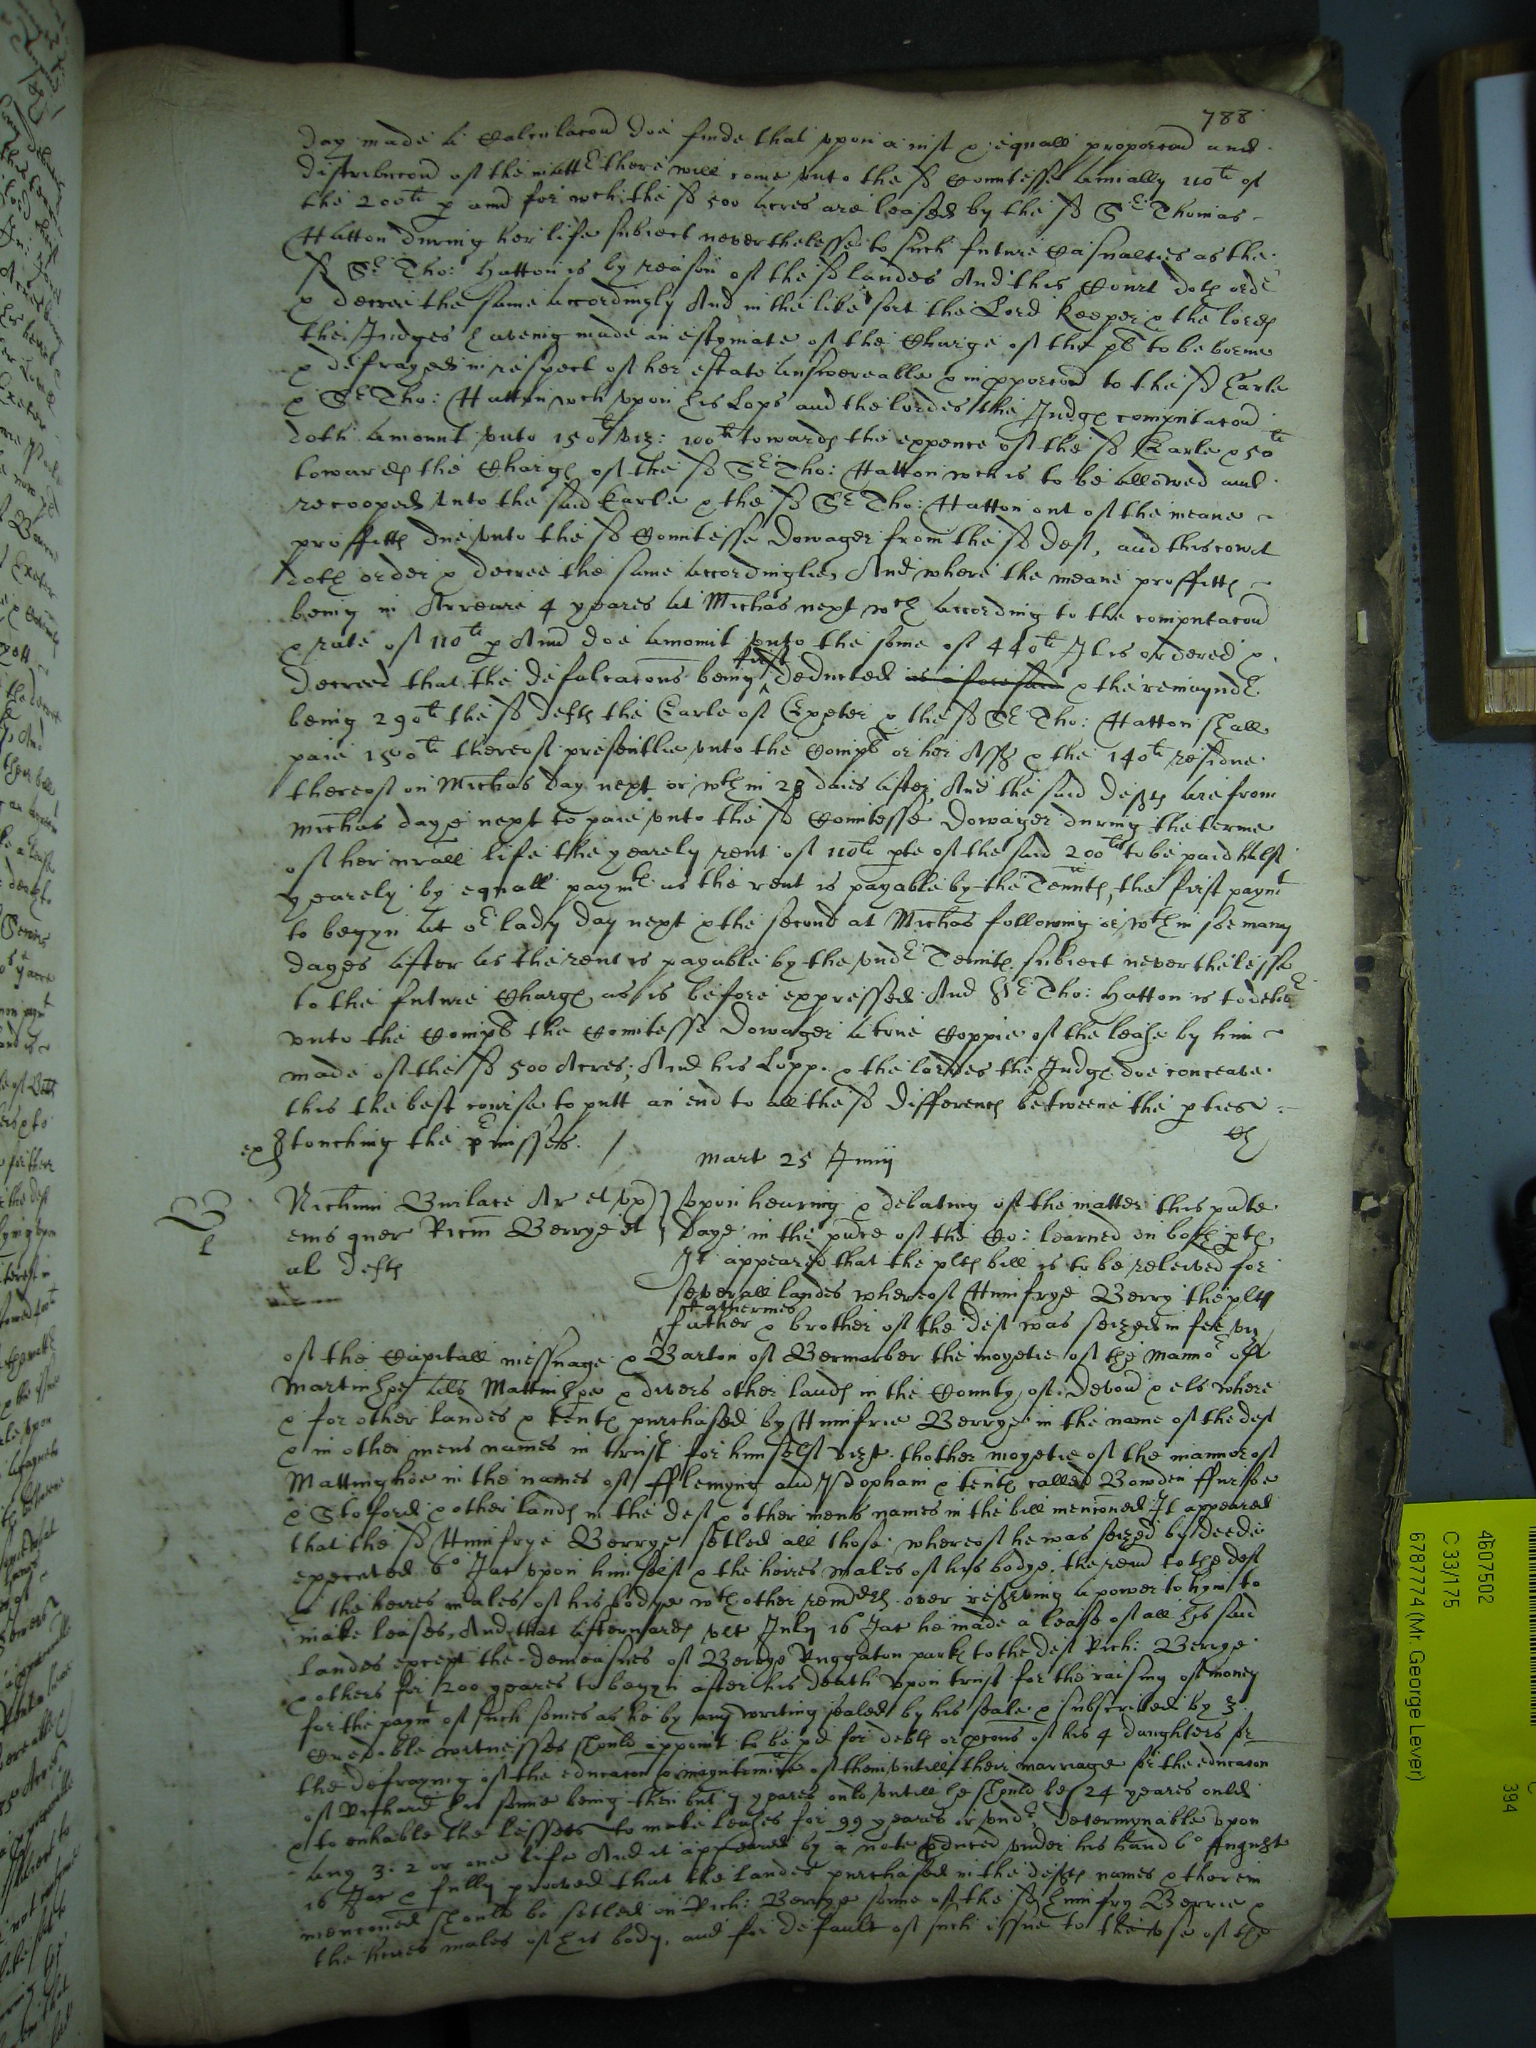 788
day made a Calculacon doe finde that upon a iust & equall proporcon and
distribucon of the matter there will come unto the sd Countesse Annually 110li of
the 200li p ann for wch the sd 500 Acres are leased by the sd Sr Thomas
Hatton during her life subiect neverthelesse to such future Casualties as the
sd Sr Tho: Hatton is by reason of the sd landes And this Court doth order
& decree the same accordingly And in the like sort the Lord Keeper & the lords
the Judges haveing made an estymate of the Charge of the plt to be borne
& defrayed in respect of her estate Answereable & in pporcon to the sd Earle
& Sr Tho: Hatton wch upon his Lops and the lordes the Judges computacon
doth Amount unto 150li viz: 100li towards the expence of the sd Earle & 50li
towards the Charge of the sd Sr Tho: Hatton wch is to be allowed and
recooped unto the said Earle & the sd Sr Tho: Hatton out of the meane
proffitts due unto the sd Countesse Dowager from the sd Deft, and this court
doth order & decree the same accordinglie, And where the meane proffitts
being in Arreare 4 yeares at Michas next wch according to the computacon
& rate of 110li p Ann doe amount unto the some of 440li It is ordered &
decreed that the defalcacons being first deducted as aforesaid & the remaynder
being 290li the sd defts the Earle of Exeter & the sd Sr Tho: Hatton shall
paie 150li thereof presentlie unto the Complt or her Asss & the 140li residue
thereof on Michas day next or wthin 28 daies after, And the said defts are from
Michas daye next to paie unto the sd Countesse Dowager during the terme
of her nrall life the yearely rent of 110li pte of the said 200li to be paid halfe
yearely by equall paymts as the rent is payable by the Tennts, the first paymt
to begyn at or lady day next & the second at Michas following or wthin soe many
dayes after as the rent is payable by the undr Tennts subiect neverthelesse
to the future Charges as is before expressed And Sr Tho: Hatton is to delivr
unto the Complt the Countesse Dowager a true Coppie of the lease by him
made of the sd 500 Acres; And his Lopp & the lordes the Judges doe conceave
this the best course to putt an end to all the sd differencs betweene the pties
ex touching the pmisses. /
Mart 25 Junij
Nichum Burlace Ar et ux upon hearing & debating of the matter this pnte
eius quer Ricm Berrye et Daye in the pnce of the Co: learned on both pts,
al defts It appeared that the plts bill is to be releived for
severall landes whereof Humfrye Berry the plt
Katherines
father & brother of the deft was seized in fee viz
of the Capitall messuage & Barton of Bernarber the moyetie of the Mannor of
Martinhoe als Mattinhoe & divers other lands in the County of Devon & els where
& for other landes & tents purchased by Humfrie Berrye in the name of the deft
& in other mens names in trust for himselfe vizt. thother moyetie of the mannor of
Mattinghoe in the names of fflemyng and Popham & tents called Bowden ffursse
& Stoford & other lands in the deft & other mens names in the bill menconed It appeared
that the sd Humfrye Berrye setled all those whereof he was seized by deede
executed 6o Jac upon himselfe & the heires males of his bodye. the remr to the deft
& the heires males of his bodye wth other remdrs over reserving a power to hym to
make leases, And that afterwards ult July 16 Jac he made a lease of all his said
landes except the demeasnes of Berrye Ruggaton parke to the deft Rich: Berrye
& others for 200 yeares to begyn after his death upon trust for the raising of money
for the paymt of such somes as he by any writing sealed by his seale & subscribed by 3
Credible wittnesses should appoint to be pd for debts or pcons of his 4 daughters for
the defraying of the educacon or maynteance of them untill their marriage for the educacon
of Richard his sonne being then but 7 yeares onld untill he should bee 24 yeares ould
& to enhable the lessees to make leases for 99 yeares or undr, determynable upon
any 3: 2 or one life And it appeared by a note pduced under his hand 6o August
16 Jac & fully proved that the landes purchased in the defts names & therein
menconed should be setled on Rich: Berrye sonne of the sd Humfry Berrie &
the heires males of his body, and for default of such issue to the use of the
4607502
C 33/175
6787774 (Mr. George Lever)
394